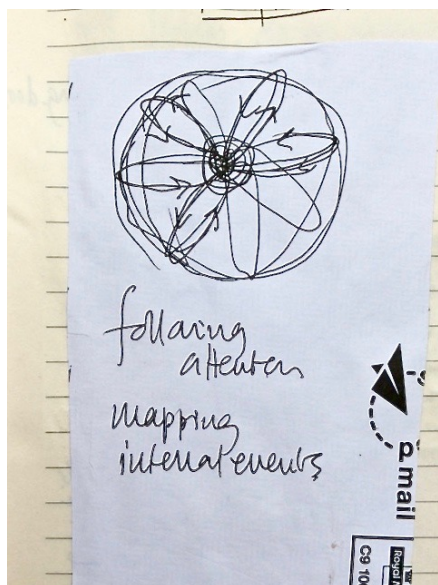 following
attention
mapping
internal events
a mail
Royal M
C9 10